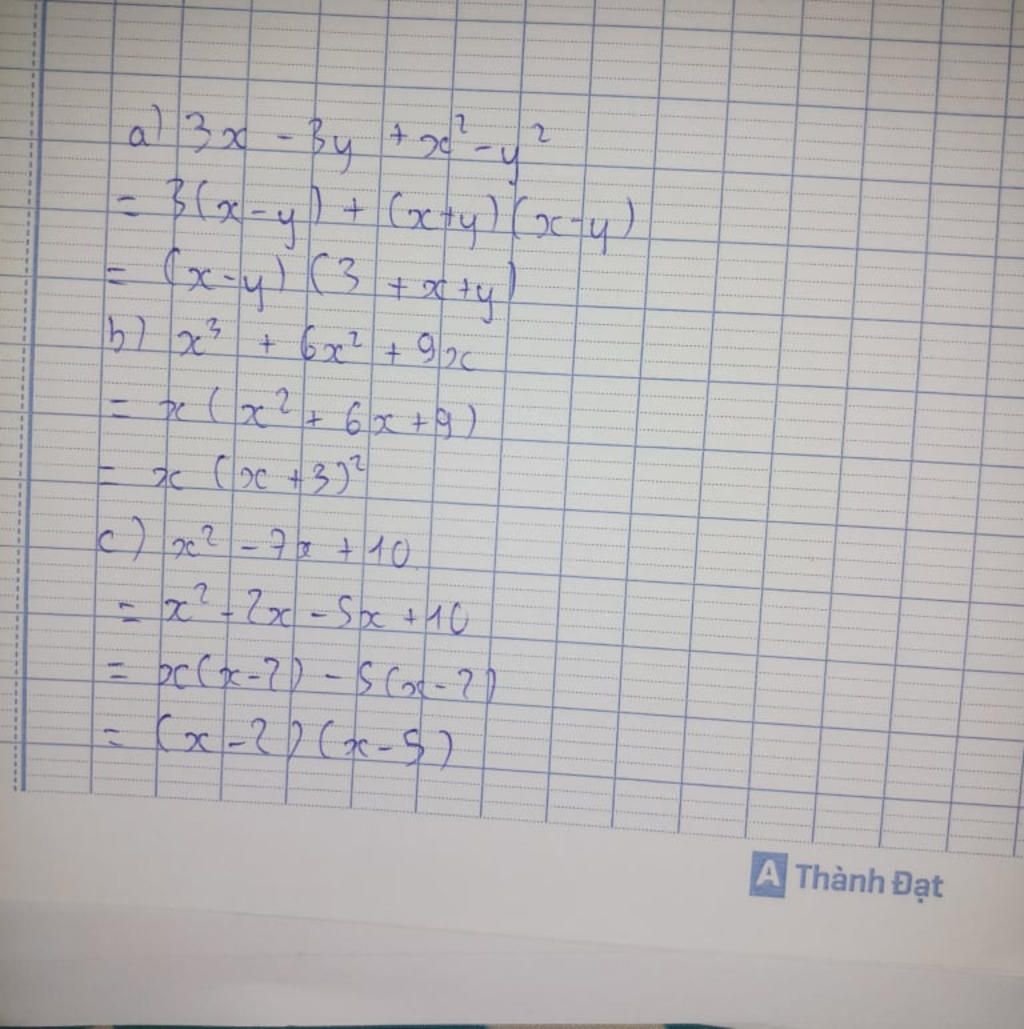 a) 3x - 3y + x² - y²
= 3(x-y) + (x+y)(x-y)
= (x-y) (3 + x+y)
b) x³ + 6x² + 9x
= x(x² + 6x+9)
= x (x+3)²
c) x² - 7x + 10
= x² - 2x - 5x + 10
= x(x-2) - 5(x-2)
= (x-2)(x-5)
A Thành Đạt